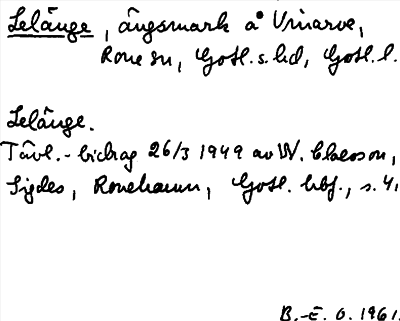 Lelänge, ängsmark å Vinarve,
Rone sn, Gotl. s. hd, Gotl. l.
Lelänge.
Tävl.-bidrag 26/3 1949 av W. Claesson,
Sigdes, Ronehamn, Gotl. hbf., s. 4.
B.-E. O. 1961.